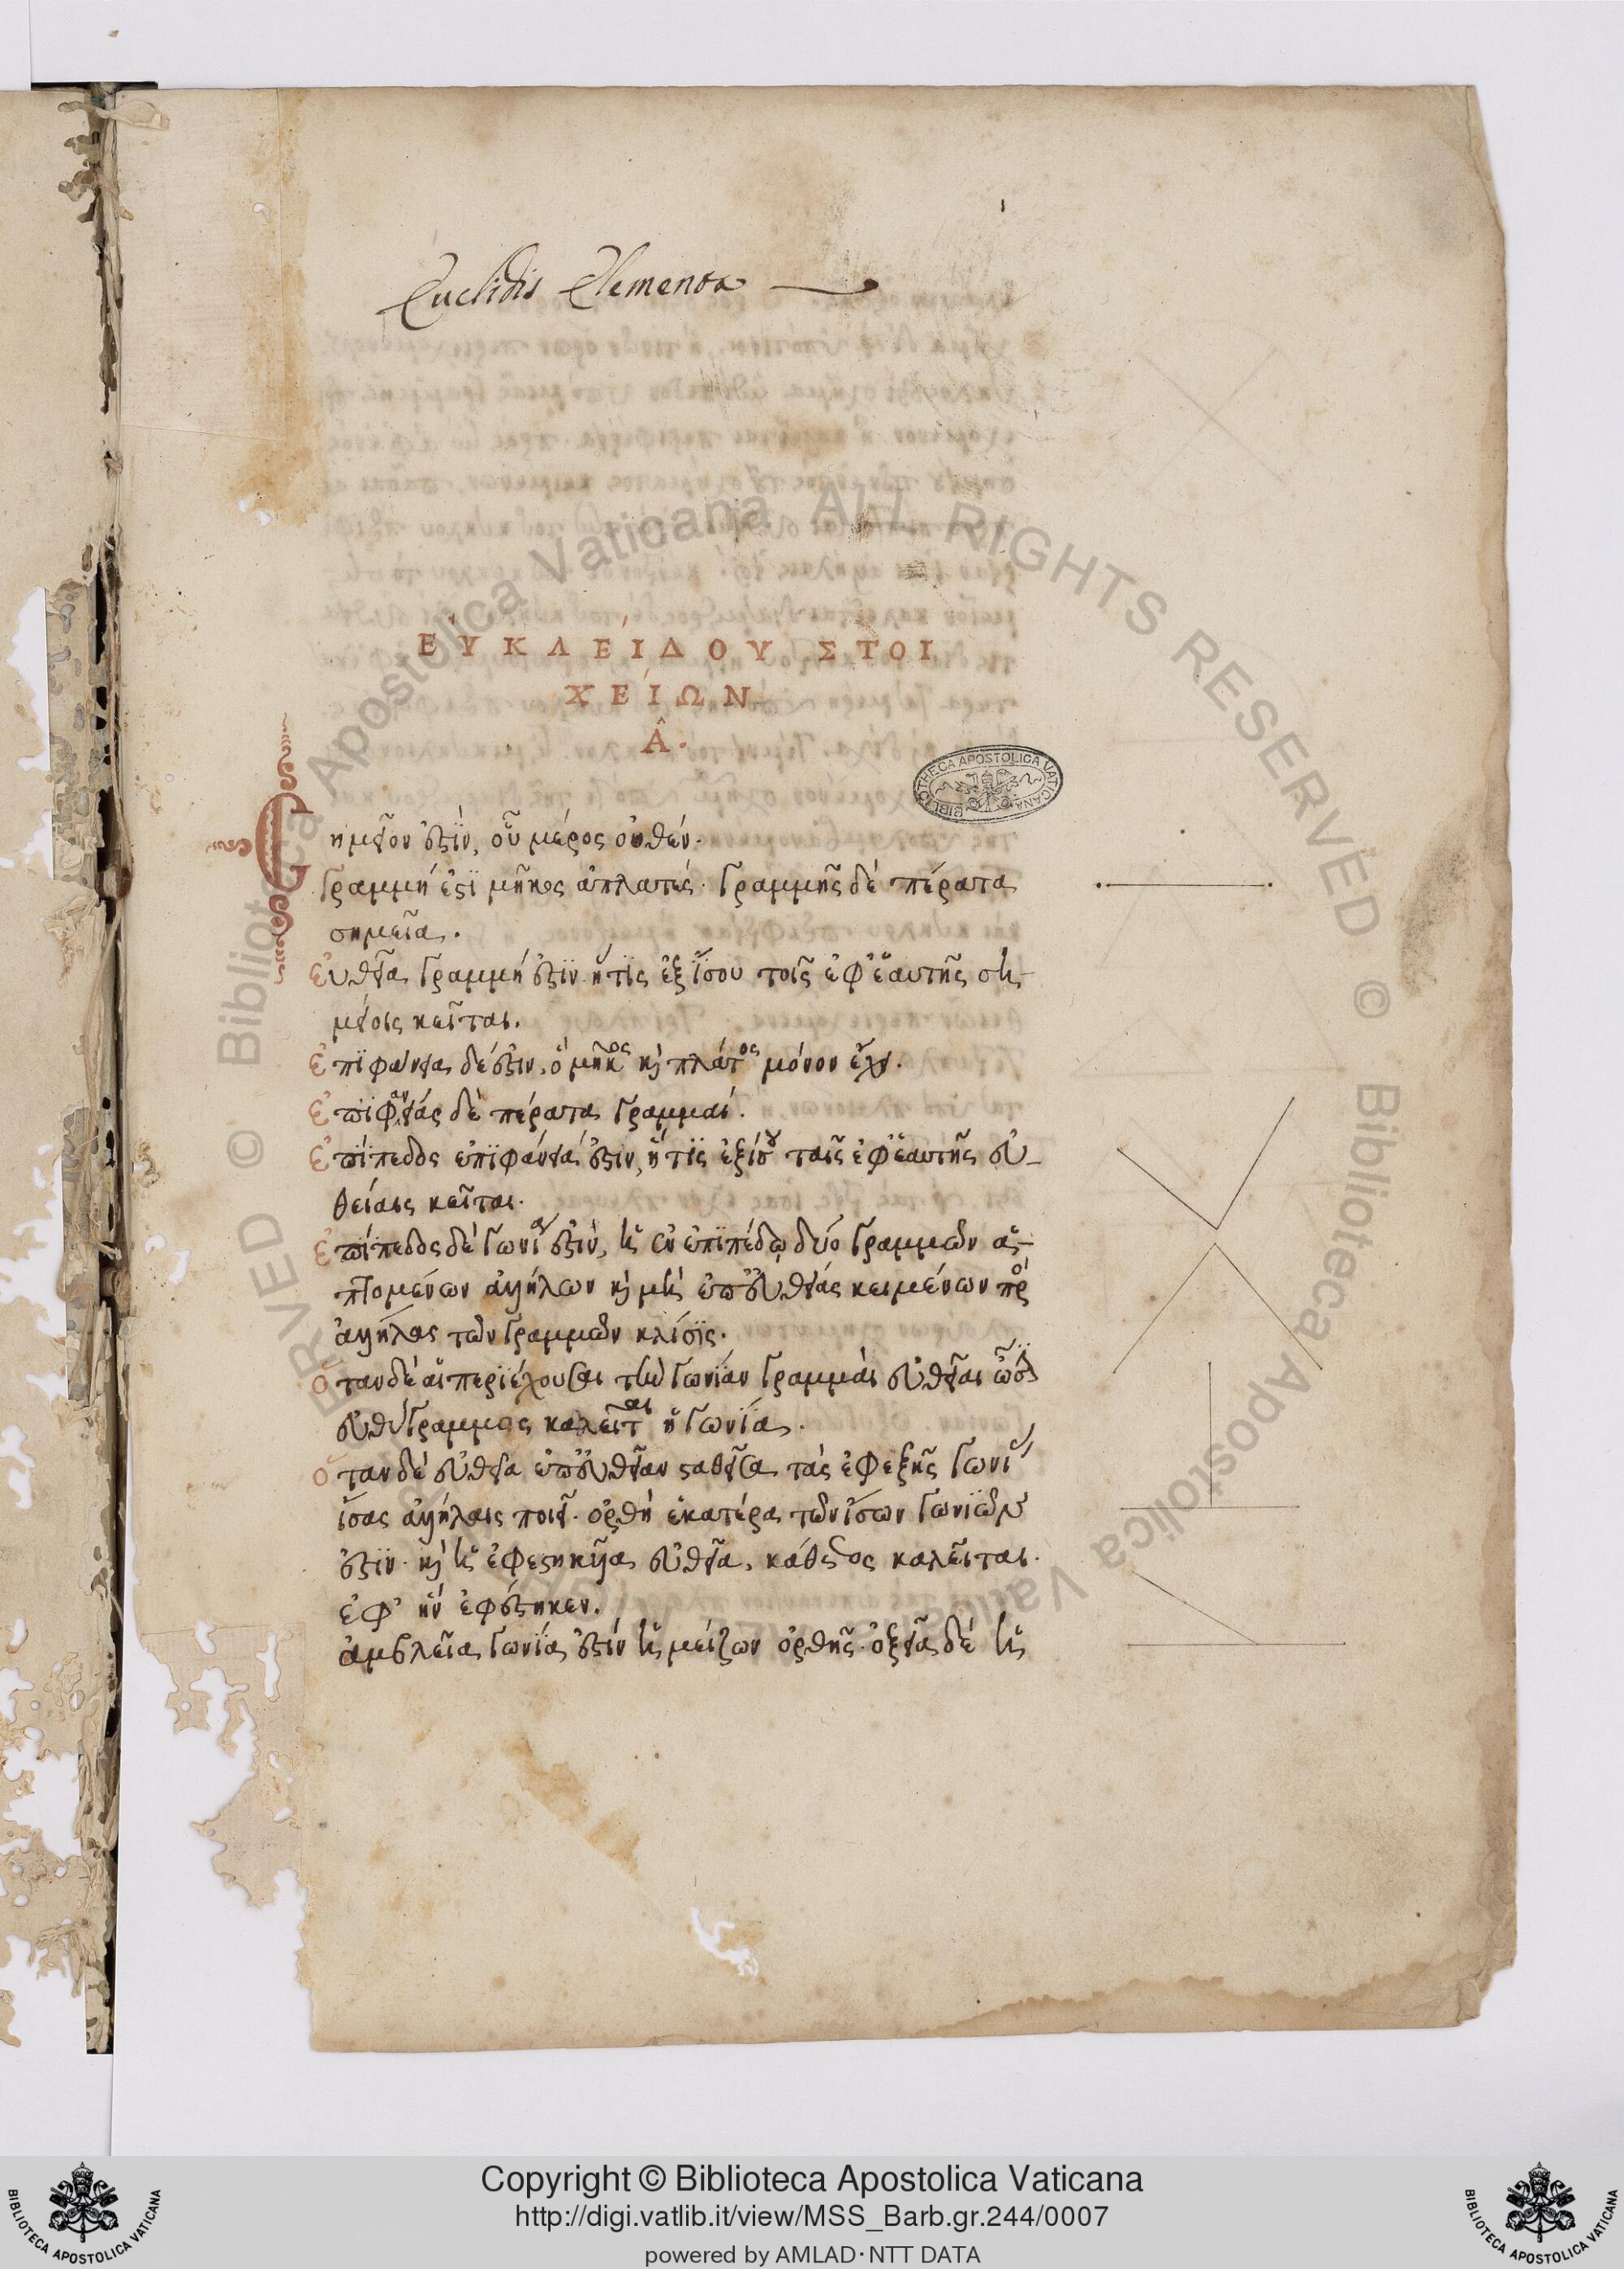 1
Euclidis Elementa
ΕΥ̓ΚΛΕΊΔΟΥ ΣΤΟΙ
ΧΕΊΩΝ
Α̂.
Σημεῖον ἐστὶν, οὗ μέρος οὐθέν.
Γραμμή ἐστι μῆκος ἀπλατές. Γραμμῆς δὲ πέρατα
σημεῖα.
εὐθεῖα γραμμή ἐστιν ἥτις ἐξίσου τοῖς ἐφ' ἑαυτῆς ση-
μείοις κεῖται.
ἐπιφάνεια δέ ἐστιν, ὃ μῆκος καὶ πλάτος μόνον ἔχει.
ἐπιφανείας δὲ πέρατα γραμμαί.
ἐπίπεδος ἐπιφάνειά ἐστιν, ἥτις ἐξίσου ταῖς ἐφ' ἑαυτῆς εὐ-
θείαις κεῖται.
ἐπίπεδος δὲ γωνία ἐστὶν, ἡ ἐν ἐπιπέδῳ δύο γραμμῶν ἁ-
πτομένων ἀλλήλων καὶ μὴ ἐπ' εὐθείας κειμένων πρὸς
ἀλλήλας τῶν γραμμῶν κλίσις.
ὅταν δὲ αἱ περιέχουσαι τὴν γωνίαν γραμμαὶ εὐθεῖαι ὦσιν
εὐθύγραμμος καλεῖται ἡ γωνία.
ὅταν δὲ εὐθεῖα ἐπ' εὐθεῖαν σταθεῖσα τὰς ἐφεξῆς γωνίας
ἴσας ἀλλήλαις ποιεῖ. ὀρθὴ ἑκατέρα τῶν ἴσων γωνιῶν
ἐστιν. καὶ ἡ ἐφεστηκυῖα εὐθεῖα, κάθετος καλεῖται.
ἐφ' ἣν ἐφέστηκεν.
ἀμβλεῖα γωνία ἐστὶν ἡ μείζων ὀρθῆς. ὀξεῖα δὲ ἡ
BIBLIOTHECA APOSTOLICA VATICANA
© Biblioteca Apostolica Vaticana ALL RIGHTS RESERVED © Biblioteca Apostolica Vaticana ALL RIGHTS RESERVED
Copyright © Biblioteca Apostolica Vaticana
http://digi.vatlib.it/view/MSS_Barb.gr.244/0007
powered by AMLAD·NTT DATA
BIBLIOTECA APOSTOLICA VATICANA
BIBLIOTECA APOSTOLICA VATICANA